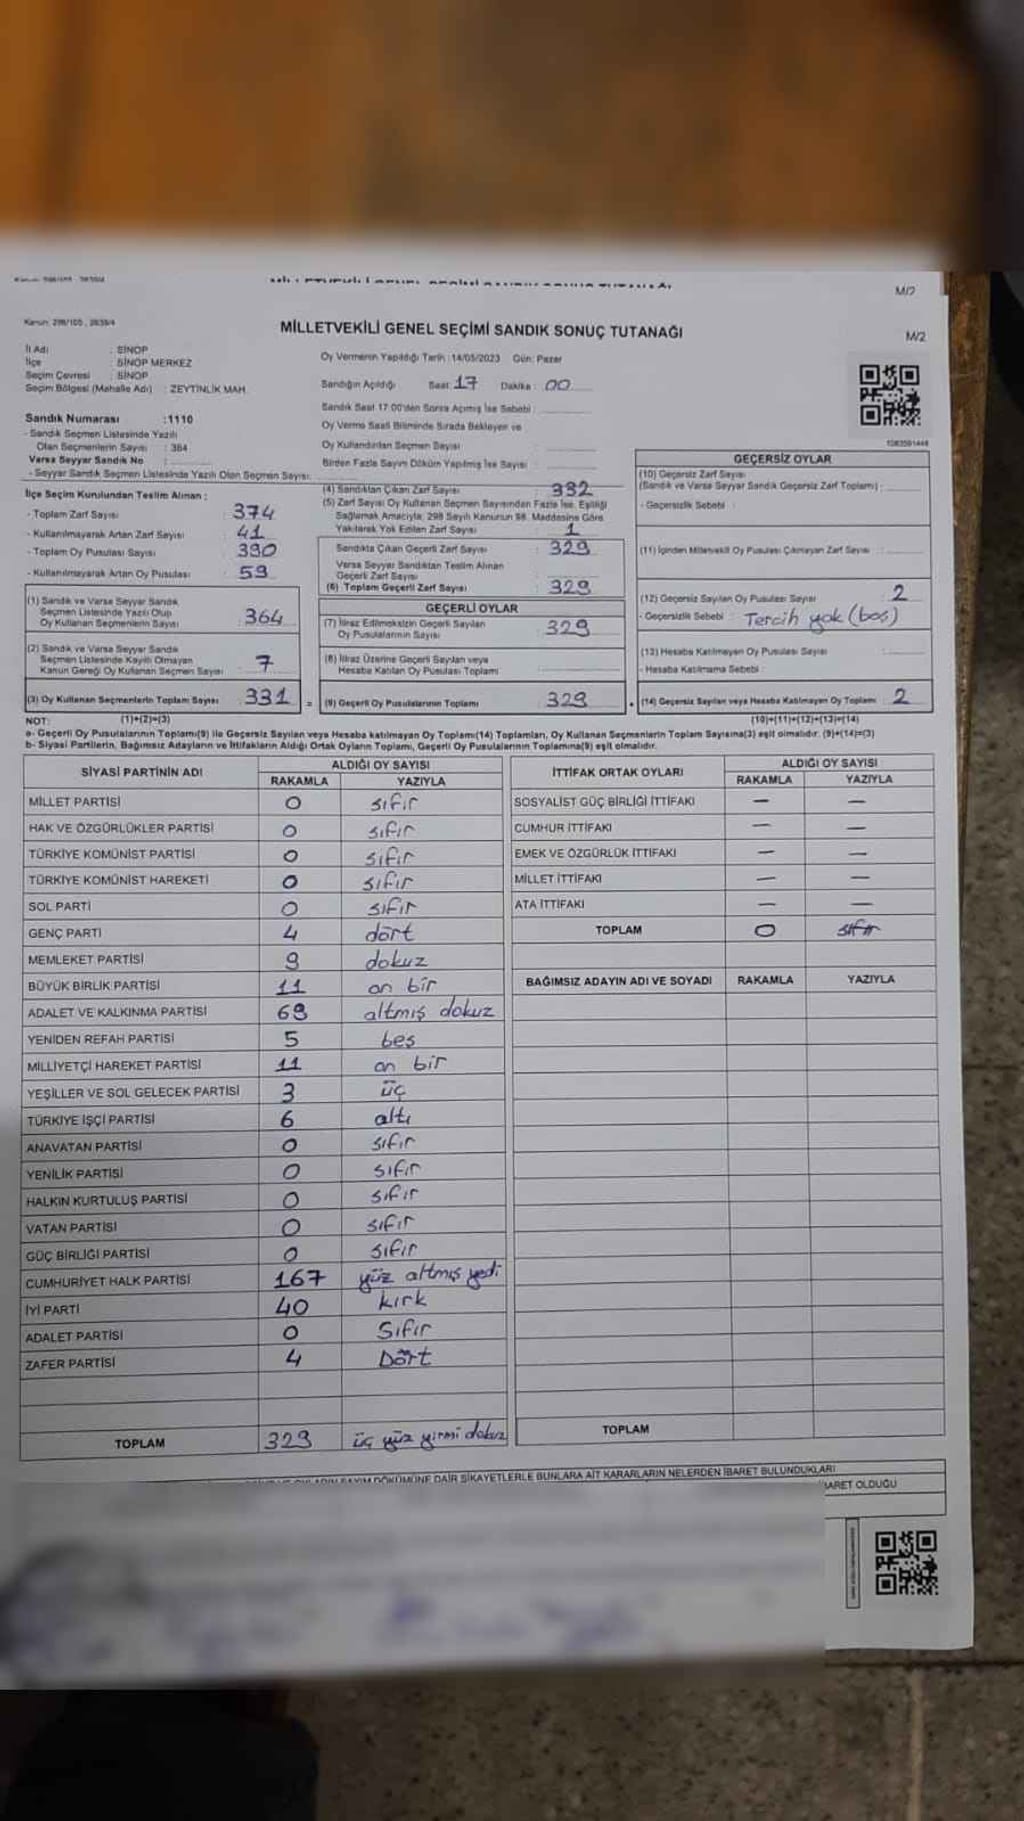 M/2
Kanun: 298/105 , 2839/4
MİLLETVEKİLİ GENEL SEÇİMİ SANDIK SONUÇ TUTANAĞI
M/2
İl Adı : SİNOP
İlçe : SİNOP MERKEZ
Seçim Çevresi : SİNOP
Seçim Bölgesi (Mahalle Adı) : ZEYTİNLİK MAH.
Oy Vermenin Yapıldığı Tarih : 14/05/2023 Gün: Pazar
Sandığın Açıldığı Saat: 17 Dakika : 00
Sandık Saat 17:00'den Sonra Açılmış İse Sebebi :
Oy Verme Saati Bitiminde Sırada Bekleyen ve
Oy Kullandırılan Seçmen Sayısı :
Birden Fazla Sayım Döküm Yapılmış İse Sayısı :
Sandık Numarası :1110
- Sandık Seçmen Listesinde Yazılı
Olan Seçmenlerin Sayısı : 364
Varsa Seyyar Sandık No :
- Seyyar Sandık Seçmen Listesinde Yazılı Olan Seçmen Sayısı:
İlçe Seçim Kurulundan Teslim Alınan :
- Toplam Zarf Sayısı : 374
- Kullanılmayarak Artan Zarf Sayısı : 41
- Toplam Oy Pusulası Sayısı : 390
- Kullanılmayarak Artan Oy Pusulası : 59
(1) Sandık ve Varsa Seyyar Sandık
Seçmen Listesinde Yazılı Olup
Oy Kullanan Seçmenlerin Sayısı : 364
(2) Sandık ve Varsa Seyyar Sandık
Seçmen Listesinde Kayıtlı Olmayan
Kanun Gereği Oy Kullanan Seçmen Sayısı : 7
(3) Oy Kullanan Seçmenlerin Toplam Sayısı : 331
(4) Sandıktan Çıkan Zarf Sayısı : 332
(5) Zarf Sayısı Oy Kullanan Seçmen Sayısından Fazla İse, Eşitliği
Sağlamak Amacıyla, 298 Sayılı Kanunun 98. Maddesine Göre
Yakılarak Yok Edilen Zarf Sayısı : 1
Sandıkta Çıkan Geçerli Zarf Sayısı : 329
Varsa Seyyar Sandıktan Teslim Alınan
Geçerli Zarf Sayısı :
(6) Toplam Geçerli Zarf Sayısı : 329
GEÇERLİ OYLAR
(7) İtiraz Edilmeksizin Geçerli Sayılan
Oy Pusulalarının Sayısı : 329
(8) İtiraz Üzerine Geçerli Sayılan veya
Hesaba Katılan Oy Pusulası Toplamı :
= (9) Geçerli Oy Pusulalarının Toplamı : 329
GEÇERSİZ OYLAR
(10) Geçersiz Zarf Sayısı
(Sandık ve Varsa Seyyar Sandık Geçersiz Zarf Toplamı) :
- Geçersizlik Sebebi :
(11) İçinden Milletvekili Oy Pusulası Çıkmayan Zarf Sayısı :
(12) Geçersiz Sayılan Oy Pusulası Sayısı : 2
- Geçersizlik Sebebi : Tercih yok (boş)
(13) Hesaba Katılmayan Oy Pusulası Sayısı :
- Hesaba Katılmama Sebebi :
+ (14) Geçersiz Sayılan veya Hesaba Katılmayan Oy Toplamı : 2
NOT: (1)+(2)=(3) (10)+(11)+(12)+(13)=(14)
a- Geçerli Oy Pusulalarının Toplamı(9) ile Geçersiz Sayılan veya Hesaba katılmayan Oy Toplamı(14) Toplamları, Oy Kullanan Seçmenlerin Toplam Sayısına(3) eşit olmalıdır. (9)+(14)=(3)
b- Siyasi Partilerin, Bağımsız Adayların ve İttifakların Aldığı Ortak Oyların Toplamı, Geçerli Oy Pusulalarının Toplamına(9) eşit olmalıdır.
SİYASİ PARTİNİN ADI ALDIĞI OY SAYISI
RAKAMLA YAZIYLA
MİLLET PARTİSİ 0 sıfır
HAK VE ÖZGÜRLÜKLER PARTİSİ 0 sıfır
TÜRKİYE KOMÜNİST PARTİSİ 0 sıfır
TÜRKİYE KOMÜNİST HAREKETİ 0 sıfır
SOL PARTİ 0 sıfır
GENÇ PARTİ 4 dört
MEMLEKET PARTİSİ 9 dokuz
BÜYÜK BİRLİK PARTİSİ 11 on bir
ADALET VE KALKINMA PARTİSİ 69 altmış dokuz
YENİDEN REFAH PARTİSİ 5 beş
MİLLİYETÇİ HAREKET PARTİSİ 11 on bir
YEŞİLLER VE SOL GELECEK PARTİSİ 3 üç
TÜRKİYE İŞÇİ PARTİSİ 6 altı
ANAVATAN PARTİSİ 0 sıfır
YENİLİK PARTİSİ 0 sıfır
HALKIN KURTULUŞ PARTİSİ 0 sıfır
VATAN PARTİSİ 0 sıfır
GÜÇ BİRLİĞİ PARTİSİ 0 sıfır
CUMHURİYET HALK PARTİSİ 167 yüz altmış yedi
İYİ PARTİ 40 kırk
ADALET PARTİSİ 0 Sıfır
ZAFER PARTİSİ 4 Dört
TOPLAM 329 üç yüz yirmi dokuz
İTTİFAK ORTAK OYLARI ALDIĞI OY SAYISI
RAKAMLA YAZIYLA
SOSYALİST GÜÇ BİRLİĞİ İTTİFAKI — —
CUMHUR İTTİFAKI — —
EMEK VE ÖZGÜRLÜK İTTİFAKI — —
MİLLET İTTİFAKI — —
ATA İTTİFAKI — —
TOPLAM 0 sıfır
BAĞIMSIZ ADAYIN ADI VE SOYADI RAKAMLA YAZIYLA
TOPLAM
SAYIM DÖKÜMÜNE DAİR ŞİKAYETLERLE BUNLARA AİT KARARLARIN NELERDEN İBARET BULUNDUKLARI
İBARET OLDUĞU